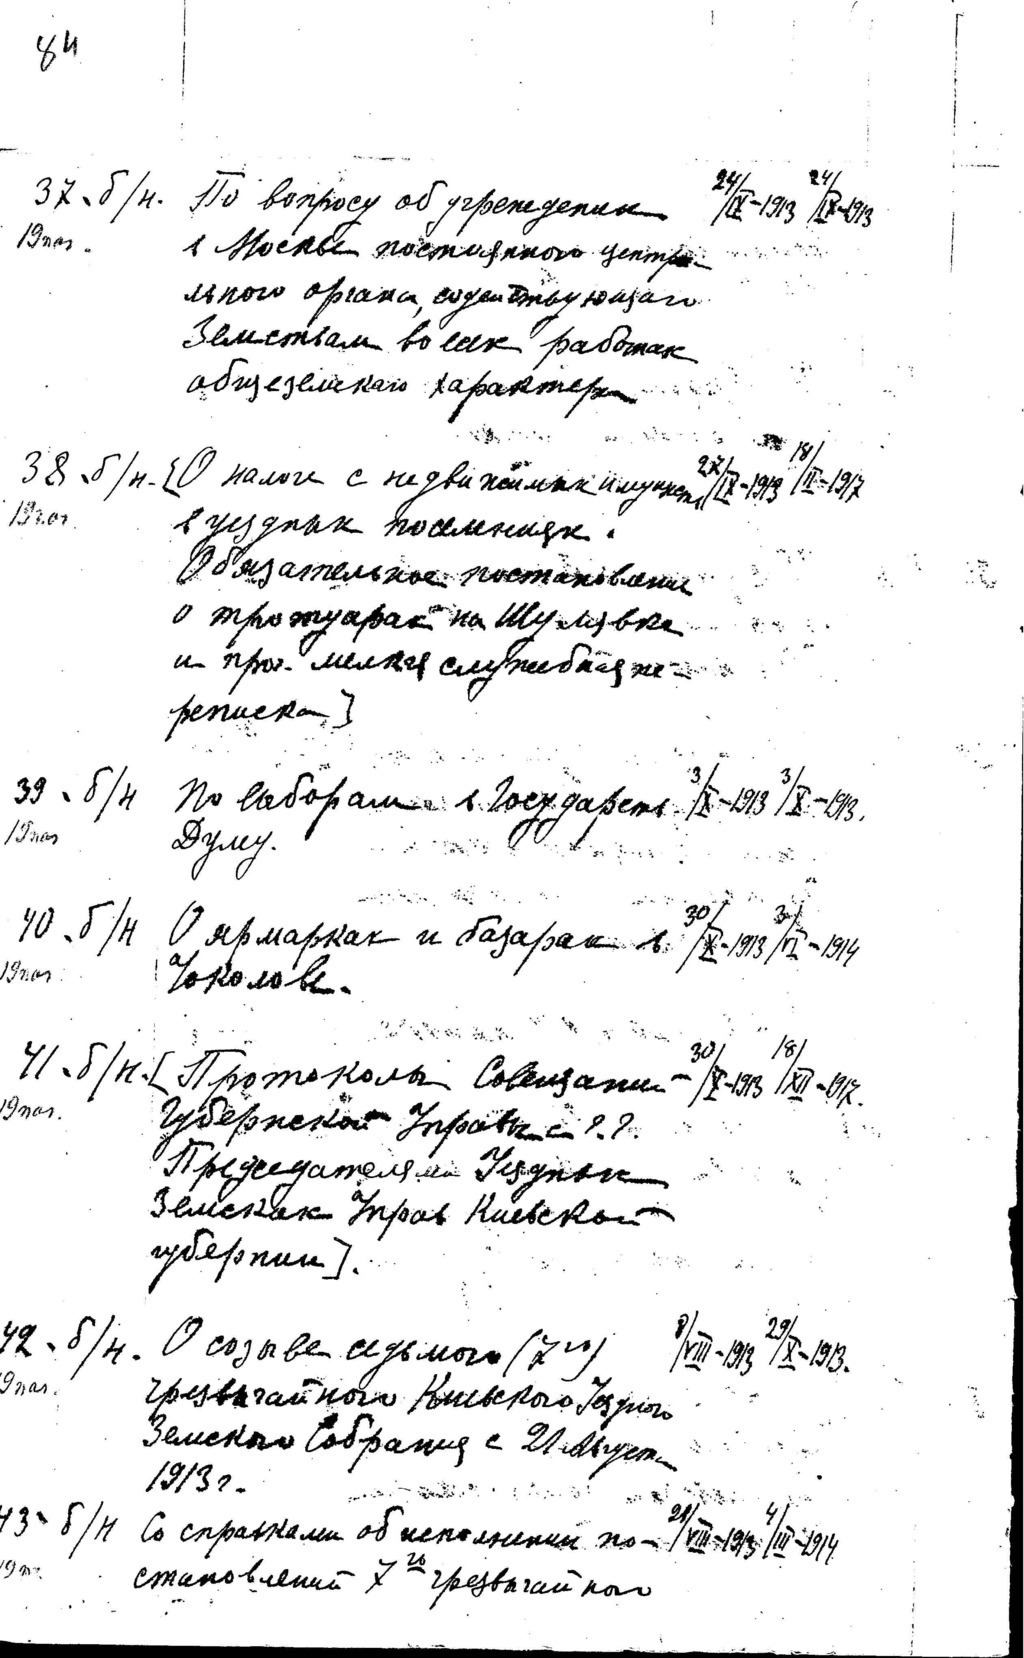 84
37. б/н. По вопросу об учреждении 24/IX-1913 24/IX-1913
19
в Москве постоянного центра-
льного органа, содействующаго
Земствам во всех работах
общеземскаго характера
38. б/н. [О налоге с недвижимых имуществ 27/IX-1913 18/II-1917
19
в уездных поселениях.
Обязательное постановление
о тротуарах на Шулявке
и проч. мелкая служебная пе-
реписка]
39. б/н По выборам в Государств. 3/X-1913 3/X-1913.
19
Думу.
40. б/н О ярмарках и базарах в 30/X-1913 /VI-1914
19
Чоколове.
41. б/н. [Протоколы Совещании 30/X-1913 18/XII-1917.
19
Губернской Управы с ?.?.
Председателями Уездных
Земских Управ Киевской
губернии].
42. б/н. О созыве седьмого (7го) 8/VIII-1913 29/X-1913.
чрезвычайного Киевского Уездного
Земского Собрания с 21 Августа
1913 г.
43. б/н Со справками об исполнении по- 21/VIII-1913 4/III-1914
становлений 7го чрезвычайного